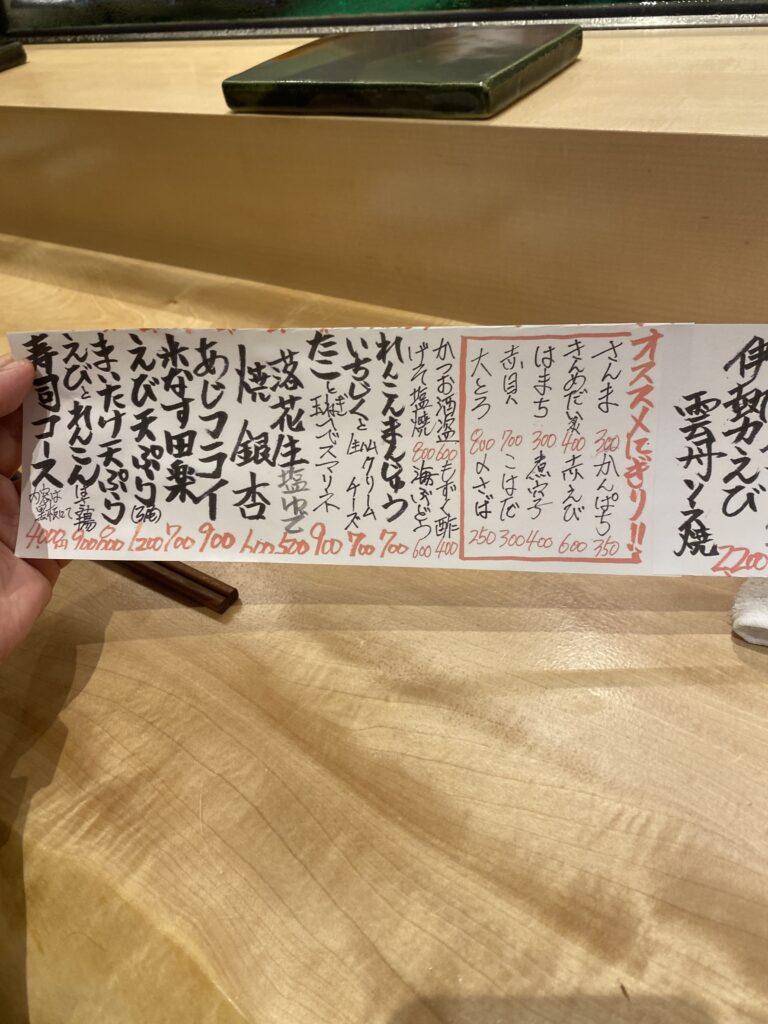 伊勢えび
雲丹ソース焼
2200
オススメにぎり!!
さんま 300
かんぱち 350
きんめだい 400
赤えび 600
はまち 300
煮穴子 400
赤貝 700
こはだ 300
大とろ 800
〆さば 250
かつお酒盗 600
もずく酢 400
げそ塩焼 800
海ぶどう 600
れんこんまんじゅう 700
いちじくと生ハムクリームチーズ 700
たこと玉ねぎ 900
落花生塩ゆで 500
焼銀杏
あじフライ 900
水なす田楽 700
えび天ぷら 1200
まいたけ天ぷら 800
えびとれんこん 900
寿司コース 内容は黒板にて 4000円